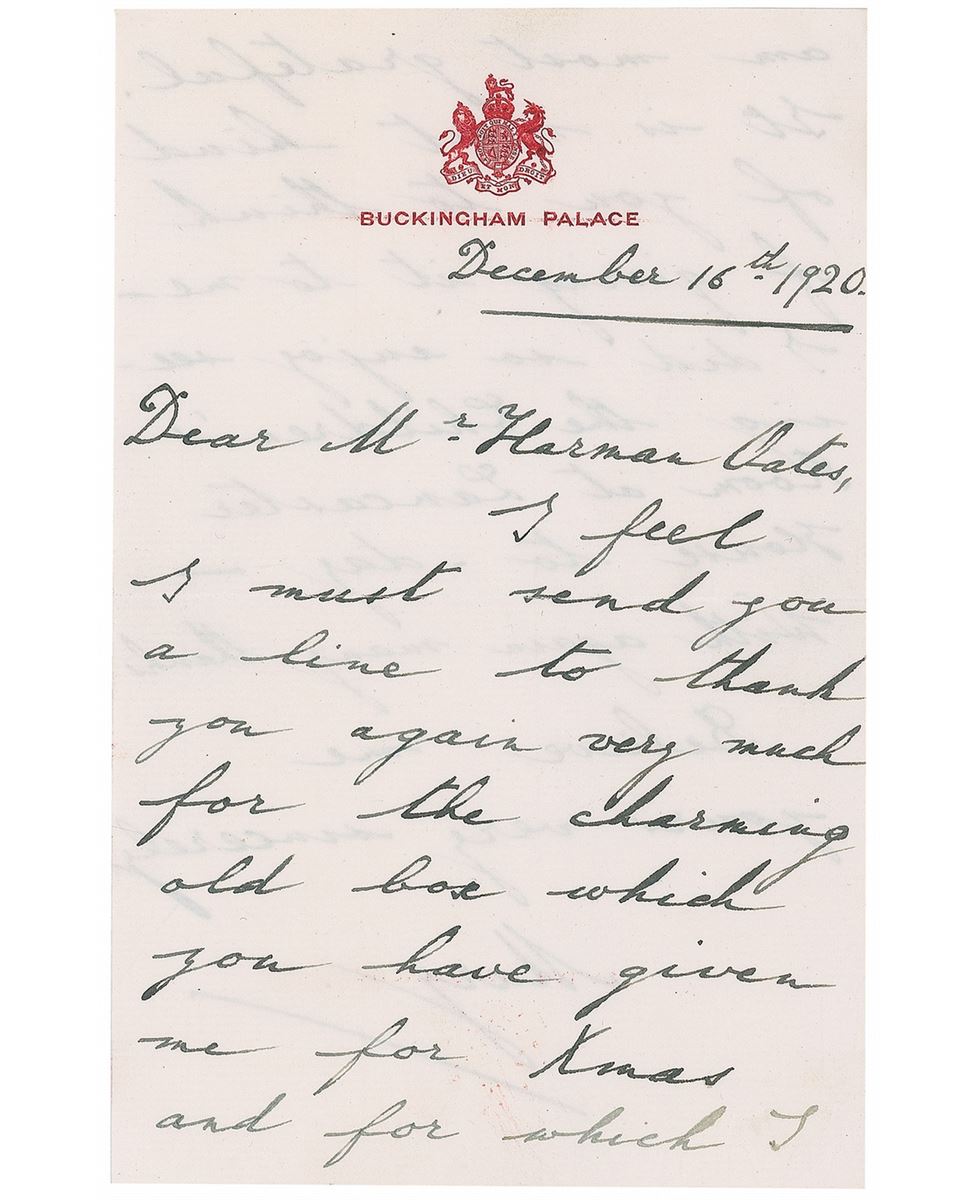 DIEU ET MON DROIT
BUCKINGHAM PALACE
December 16th 1920.
Dear Mr. Harman Oates,
I feel
I must send you
a line to thank
you again very much
for the charming
old box which
you have given
me for Xmas
and for which I